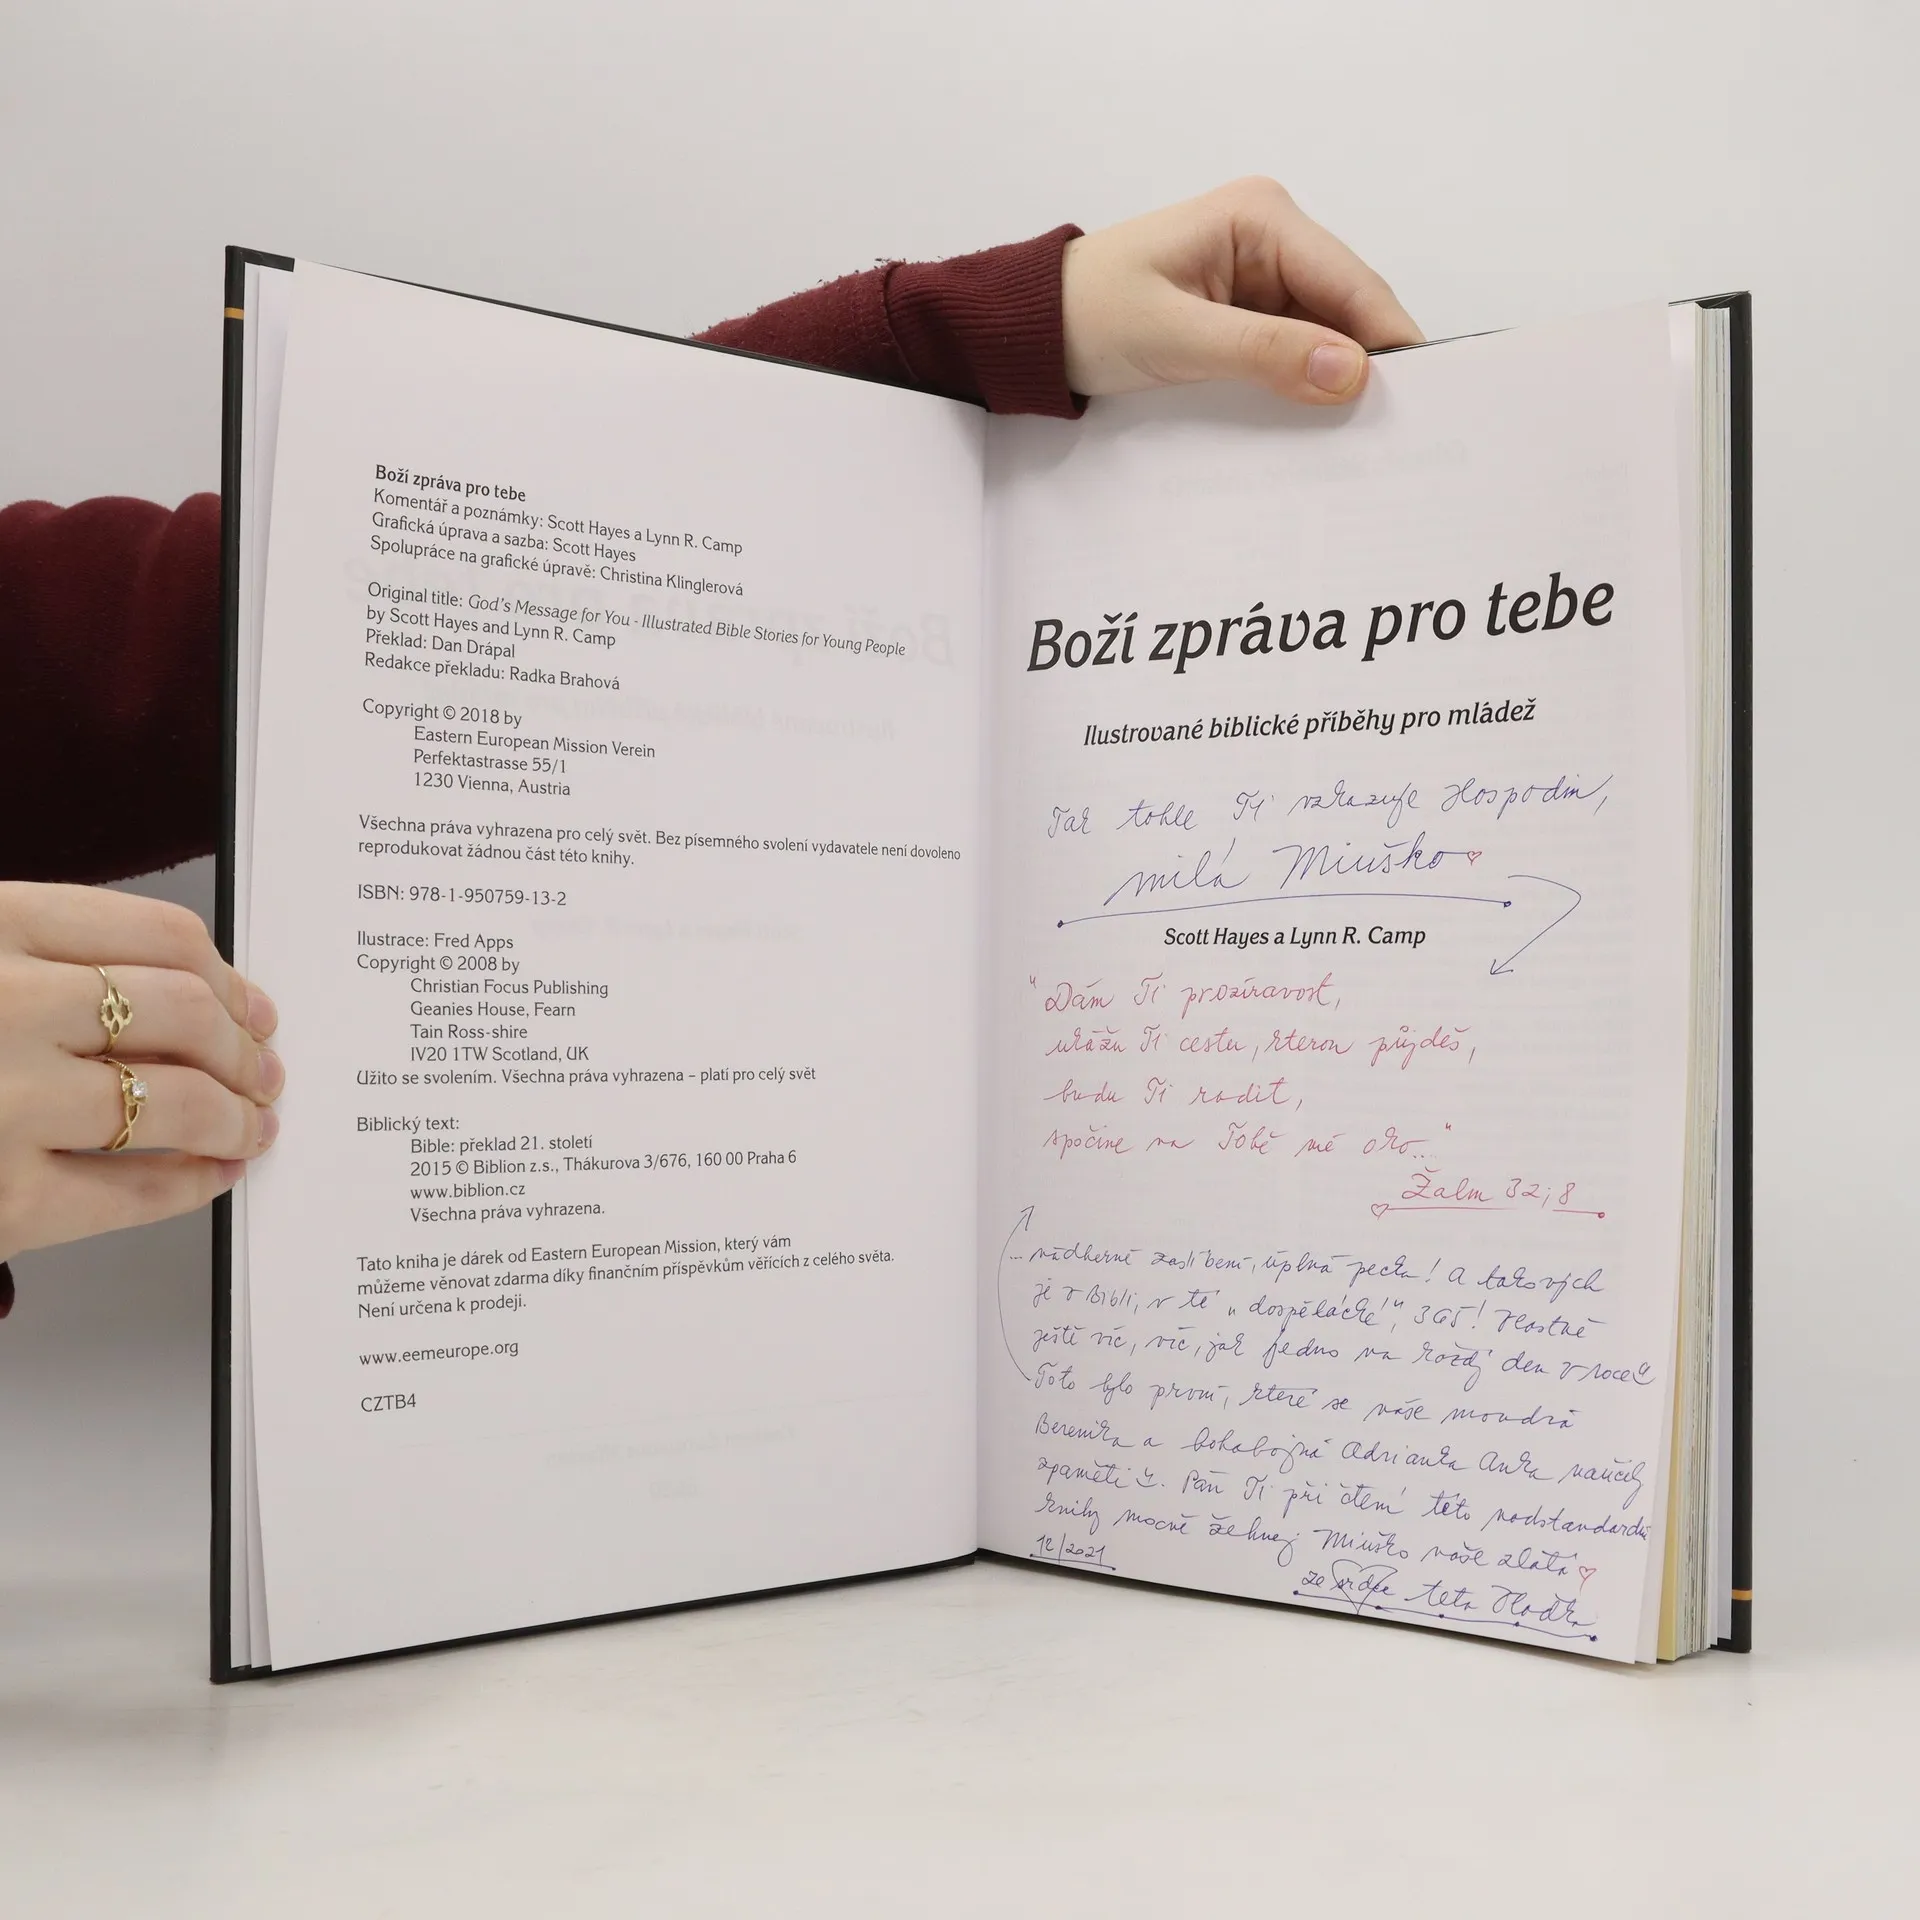 Boží zpráva pro tebe
Komentář a poznámky: Scott Hayes a Lynn R. Camp
Grafická úprava a sazba: Scott Hayes
Spolupráce na grafické úpravě: Christina Klinglerová
Original title: God's Message for You - Illustrated Bible Stories for Young People
by Scott Hayes and Lynn R. Camp
Překlad: Dan Drápal
Redakce překladu: Radka Brahová
Copyright © 2018 by
Eastern European Mission Verein
Perfektastrasse 55/1
1230 Vienna, Austria
Všechna práva vyhrazena pro celý svět. Bez písemného svolení vydavatele není dovoleno
reprodukovat žádnou část této knihy.
ISBN: 978-1-950759-13-2
Ilustrace: Fred Apps
Copyright © 2008 by
Christian Focus Publishing
Geanies House, Fearn
Tain Ross-shire
IV20 1TW Scotland, UK
Užito se svolením. Všechna práva vyhrazena – platí pro celý svět
Biblický text:
Bible: překlad 21. století
2015 © Biblion z.s., Thákurova 3/676, 160 00 Praha 6
www.biblion.cz
Všechna práva vyhrazena.
Tato kniha je dárek od Eastern European Mission, který vám
můžeme věnovat zdarma díky finančním příspěvkům věřících z celého světa.
Není určena k prodeji.
www.eemeurope.org
CZTB4
Boží zpráva pro tebe
Ilustrované biblické příběhy pro mládež
Tak tohle Ti vzkazuje Hospodin,
milá Miuško
Scott Hayes a Lynn R. Camp
"Dám Ti prozíravost,
ukážu Ti cestu, kterou půjdeš,
budu Ti radit,
spočine na Tobě mé oko..."
Žalm 32;8
... nádherné zaslíbení, úplná pecka! A takových
je v Bibli, v té "dospělácké", 365! Vlastně
ještě víc, víc, jak jedno na každý den v roce
Toto bylo první, které se naše moudrá
Berenika a bohabojná Adrianka Anka naučily
zpaměti. Pán Ti při čtení této nadstandardní
knihy mocně žehnej Miuško naše zlatá
12/2021
ze srdce teta